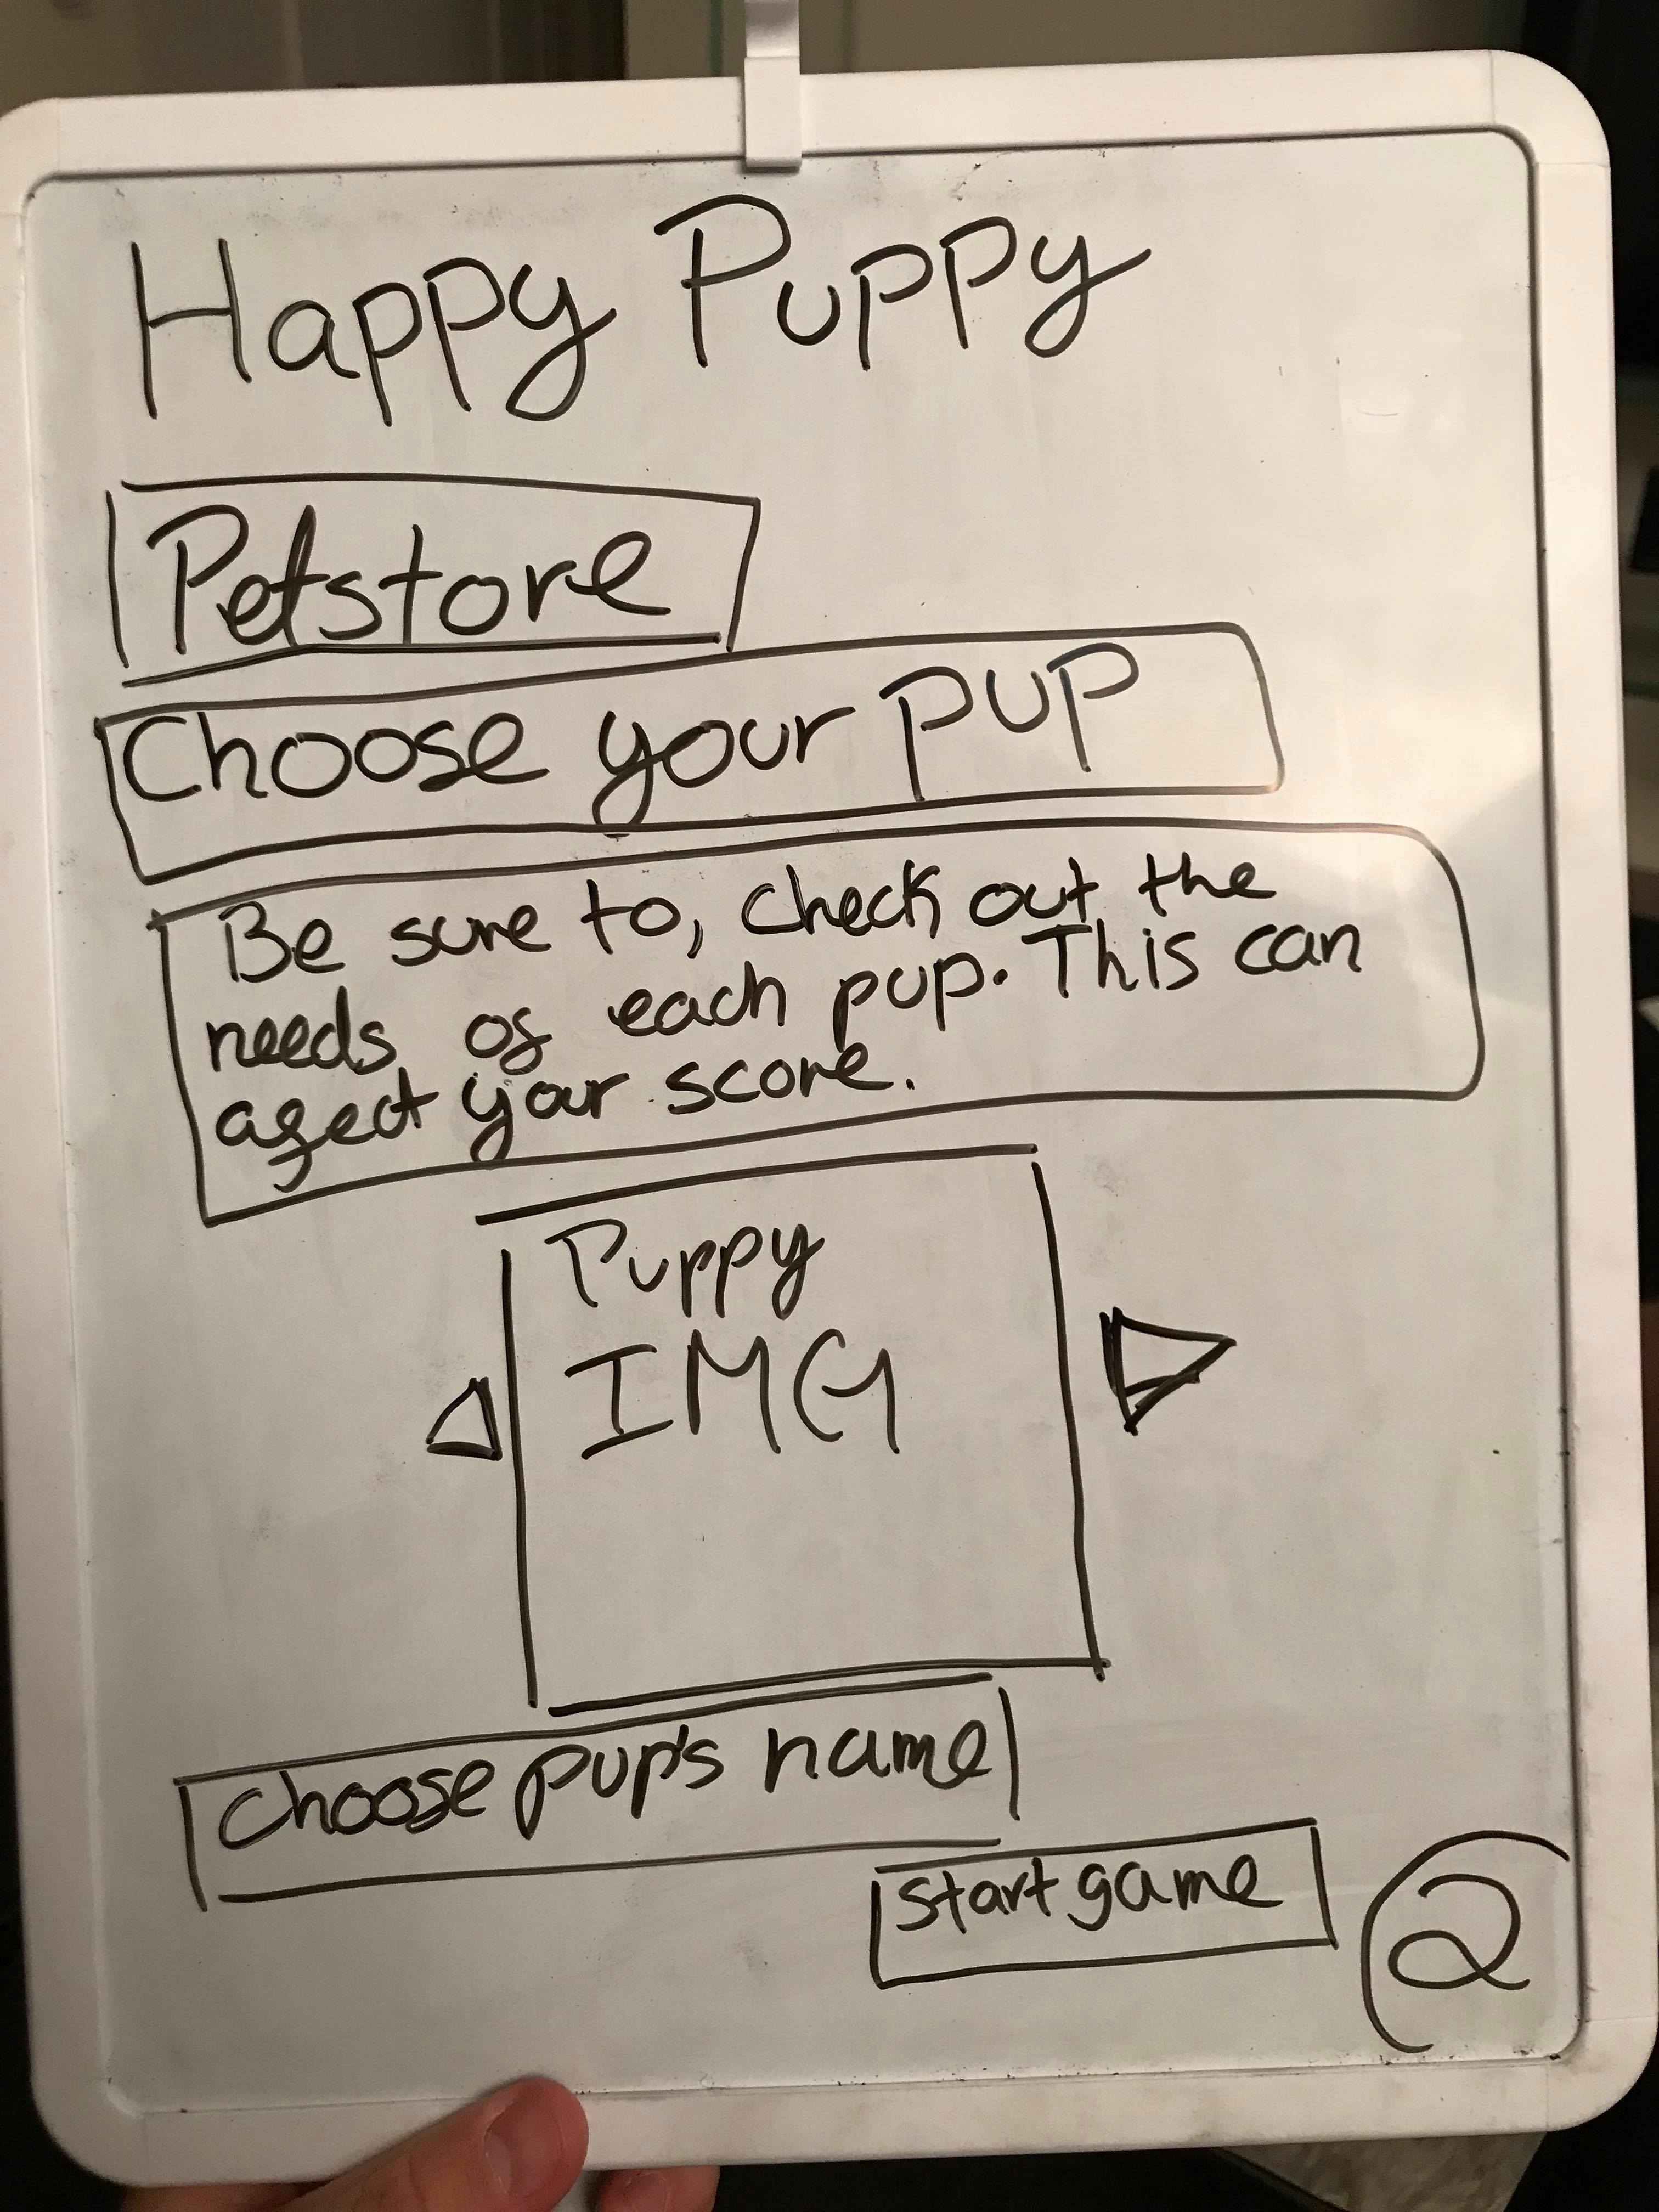 Happy Puppy
Petstore
Choose your pup
Be sure to, check out the
needs of each pup. This can
afect your score.
Puppy
IMG
choose pup's name
start game
2